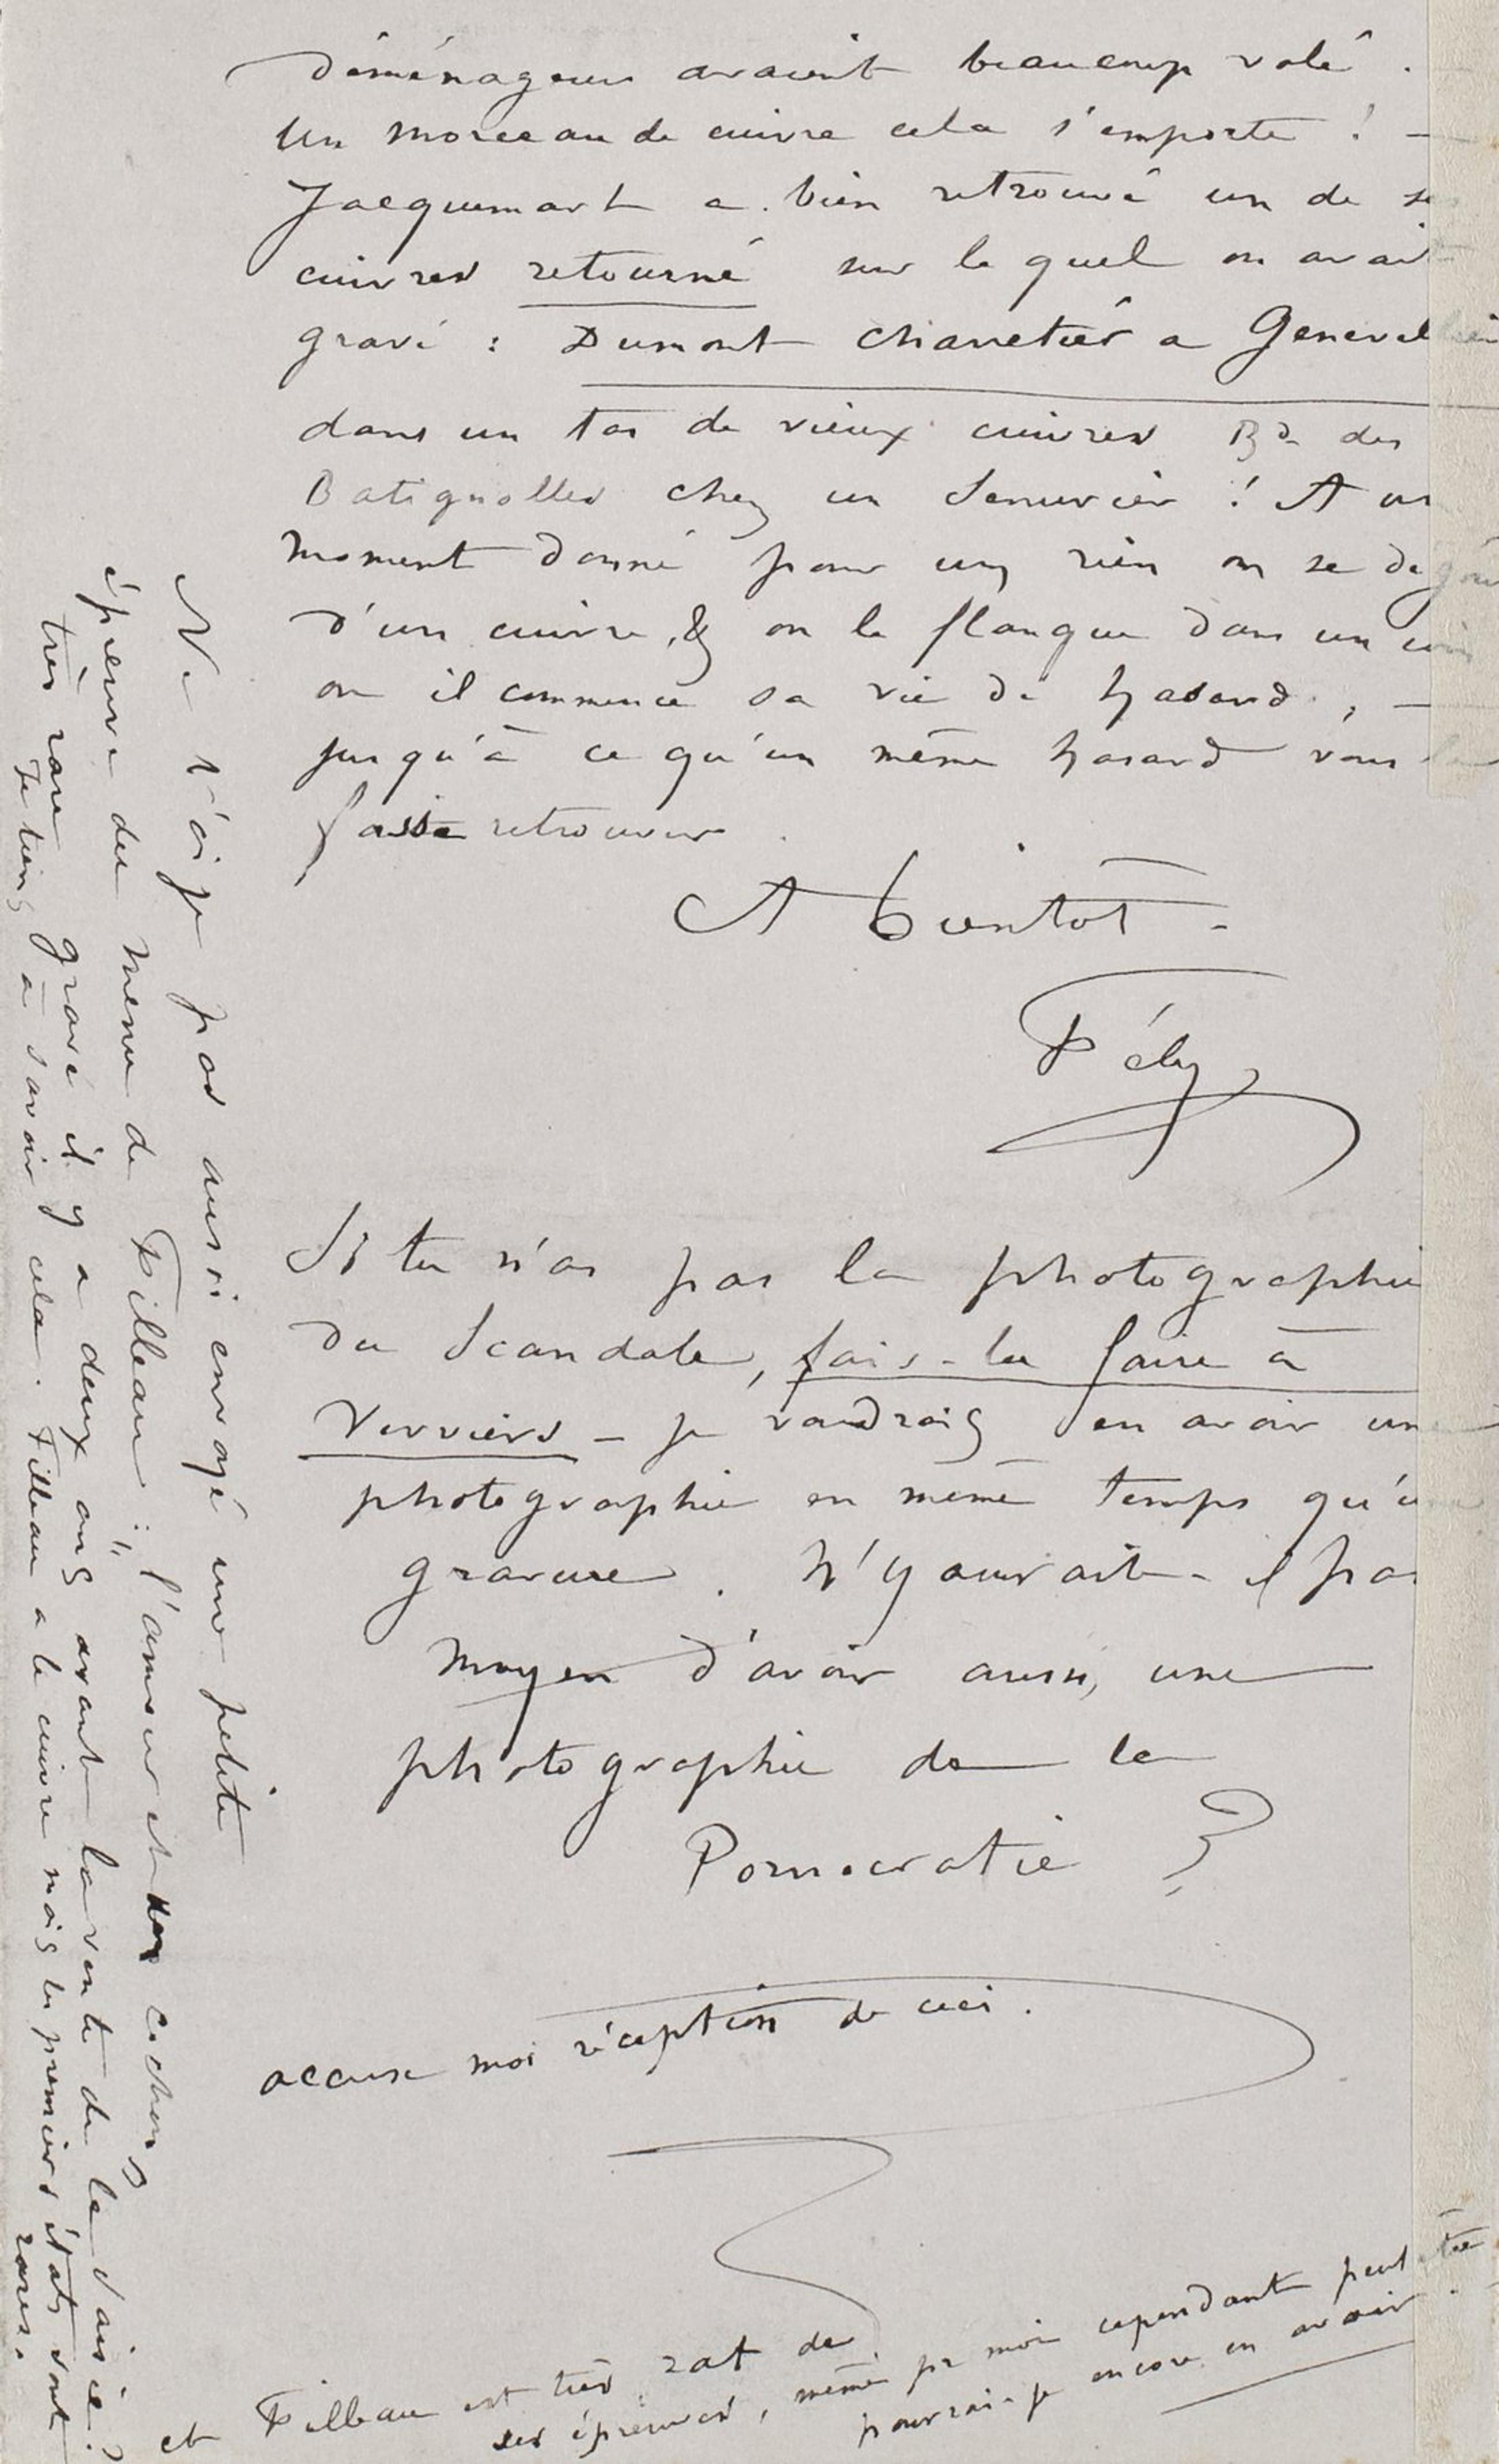 déménageurs avaient beaucoup volé.
Un morceau de cuivre cela s'emporte ! —
Jacquemart a bien retrouvé un de ses
cuivres retourné sur le quel on avait
gravé : Dumont charretier a Genevilliers
dans un tas de vieux cuivres Bd des
Batignolles chez un Serrurier ! A un
moment donné pour un rien on se dégoute
d'un cuivre, & on le flanque dans un coin
ou il commence sa vie de hasard, —
jusqu'à ce qu'un même hasard vous le
fasse retrouver.
A bientôt -
Fély
Si tu n'as pas la photographie
du Scandale, fais-la faire à
Verviers - je voudrais en avoir une
photographie en même temps qu'une
gravure. N'y aurait-il pas
moyen d'avoir aussi, une
photographie de la
Pornocratie ?
accuse moi réception de ceci.
Ne t'ai je pas aussi envoyé une petite
épreuve du menu de Filleau : "l'amour et cochon,
très rare gravé il y a deux ans avant la vente de la
Je tiens à savoir cela. Filleau a le cuivre mais les premiers états sont
rares.
et Filleau est très rat de
ses épreuves, même pr moi cependant peut être
pourrai-je encore en avoir.